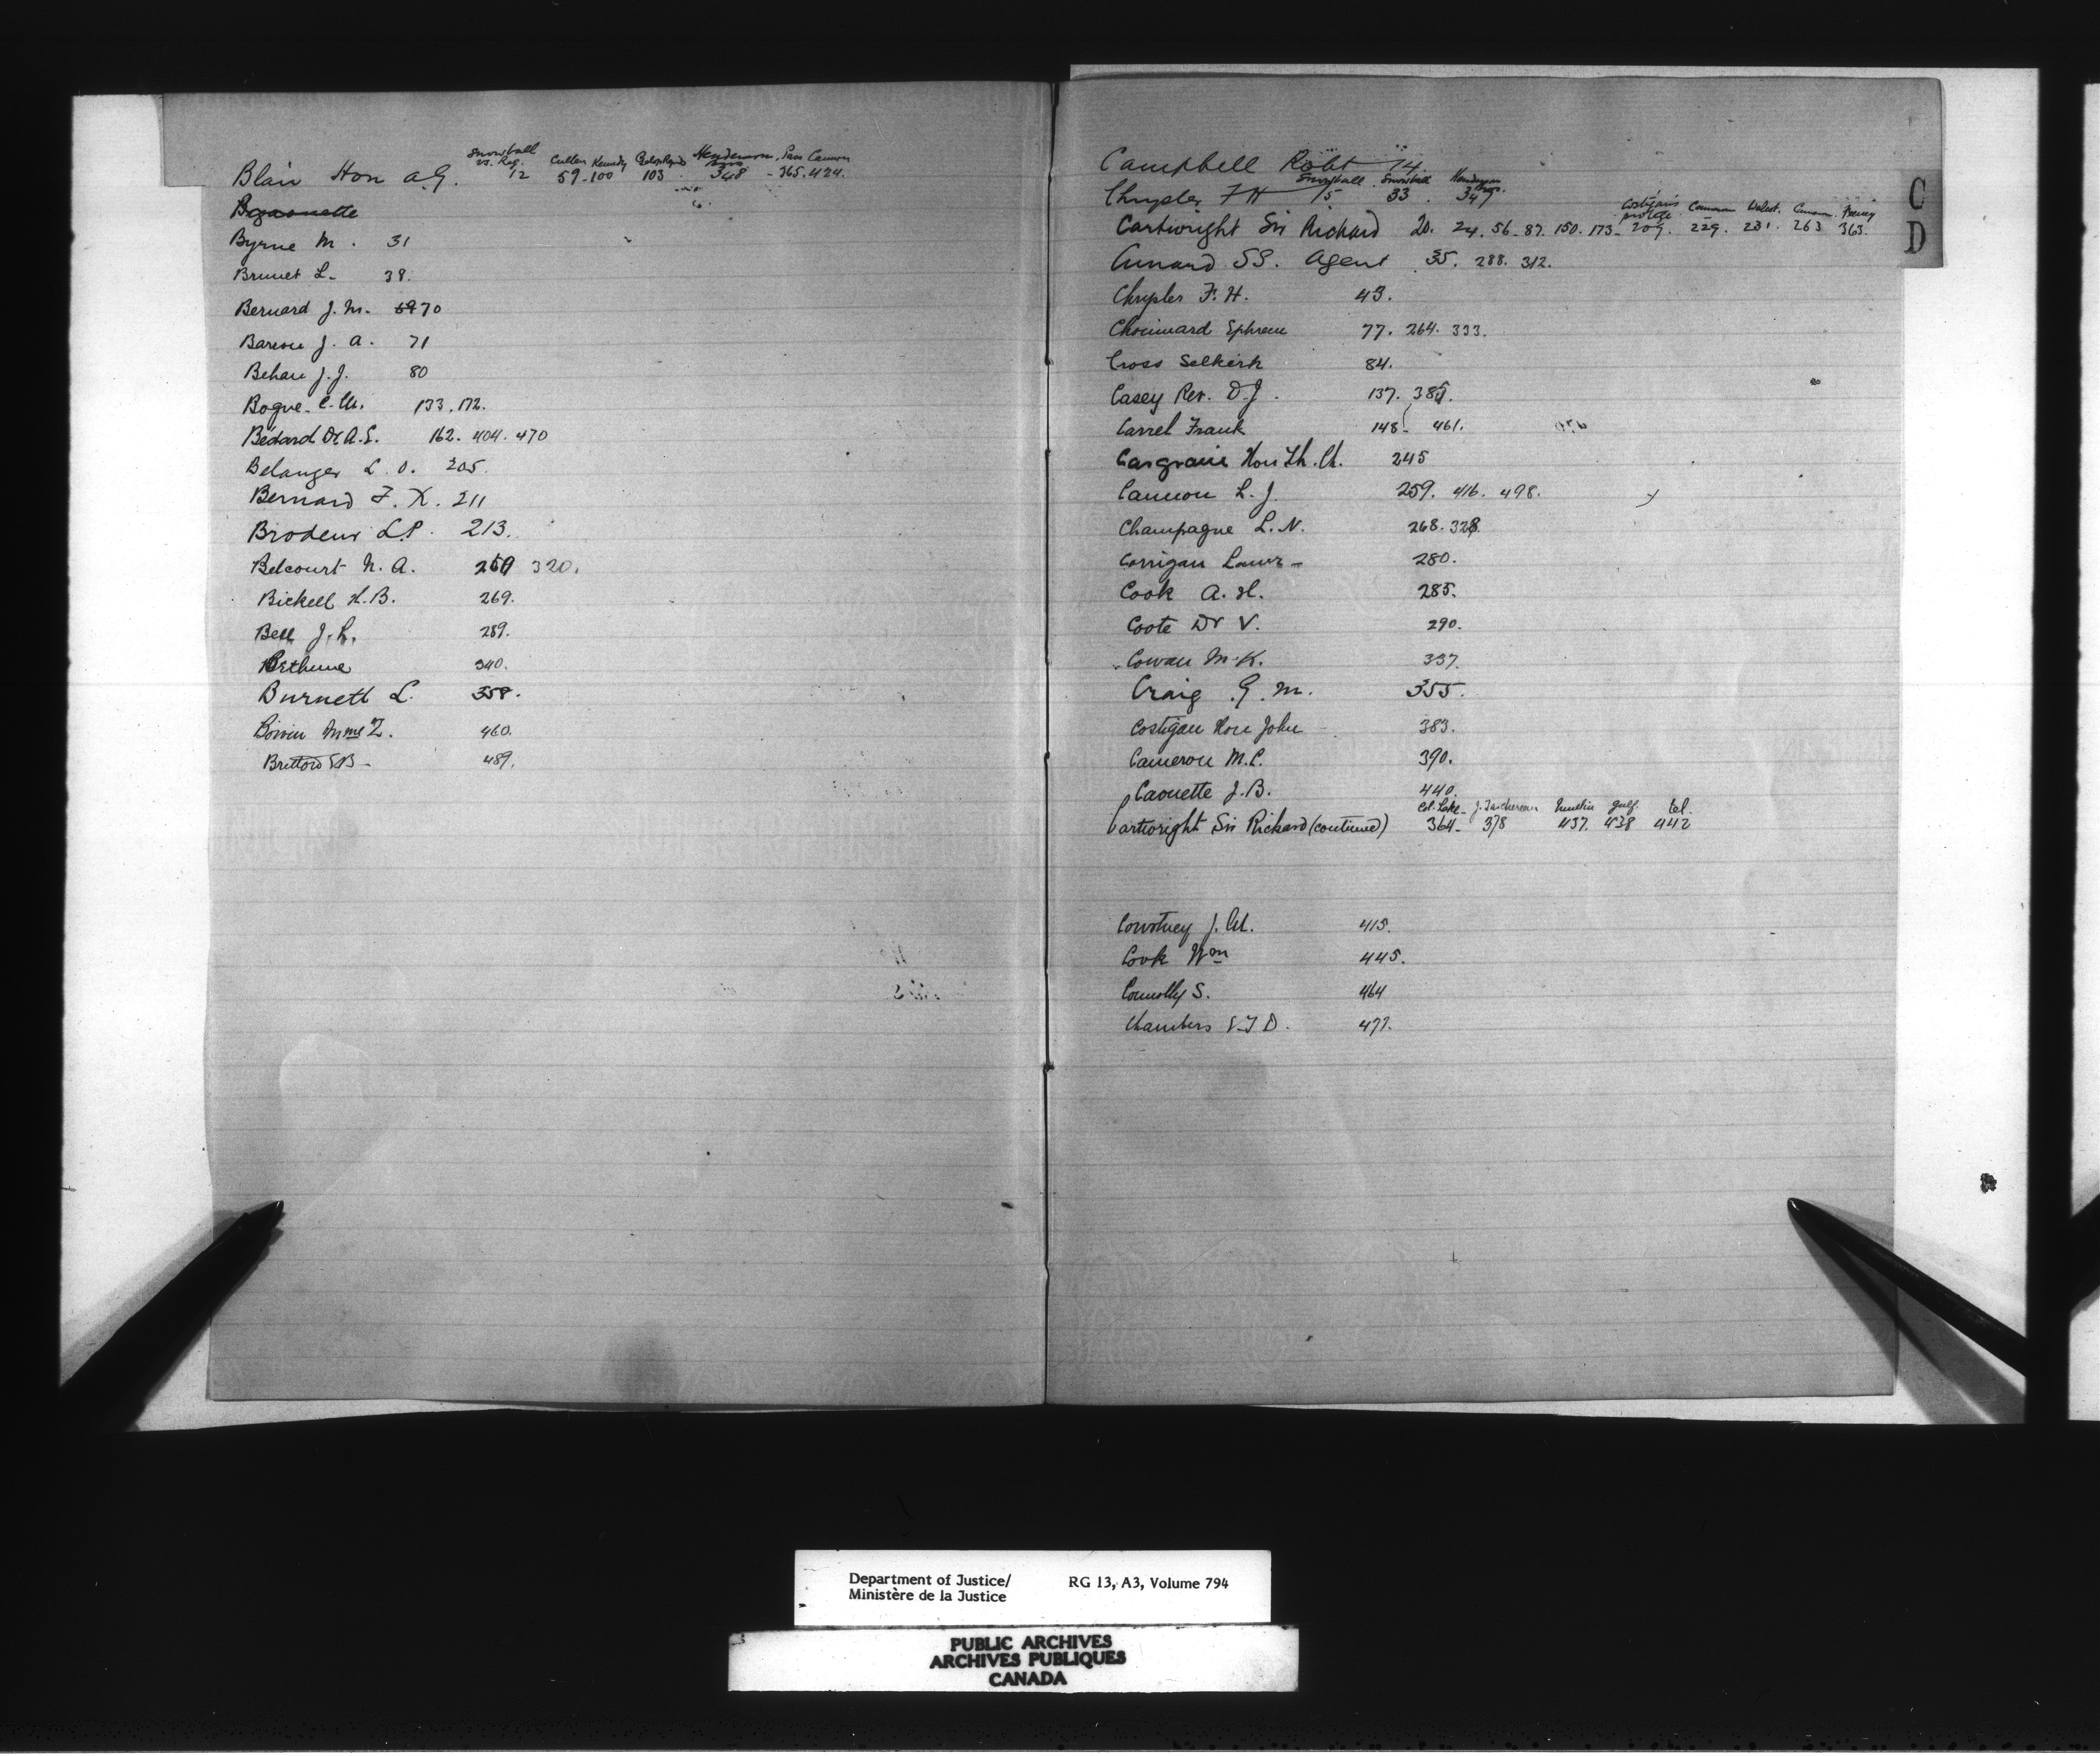 Snowball
vs. Reg. Cullen Kennedy Henderson Bros Cannon
Blair Hon A.G. 12 59-100 103. 348 - 365. 424.
Byrne M. 31
Brunet L- 38.
Bernard J. M. 70
J. A. 71
Behan J. J. 80
Bogue C. W. 133, 172.
Bédard Dr A. E. 162. 404. 470
Belanger L. O. 205.
Bernard F. X. 211
Brodeur L.P. 213.
Belcourt N. A. 320.
Bickell H.B. 269.
Bell J. L. 289.
Bethune 340.
Burnett L. 358.
Boivin Mme Z. 460.
489.
Campbell Robt 14
Snowball Snowball Henderson Bros.
Chrysler F H 15 33. 347
Costigan's protege Cameron Cameron
Cartwright Sir Richard 20. 24. 56-87. 150. 173- 209. 229. 231. 263 363.
Cunard SS. Agent 35. 288. 312.
C
D
Chrysler F. H. 43.
Chouinard Ephrem 77. 264. 333.
Cross Selkirk 84.
Casey Rev. D. J. 137. 385.
Carrel Frank 148- 461.
Casgrain Hon Th. Ch. 245
Cannon L. J. 259. 416. 498.
Champagne L. N. 268. 328.
Corrigan Lawr- 280.
Cook A. H. 285.
Coote Dr V. 290.
Cowan M. K. 337.
Craig G. M. 355.
Costigan Hon John 383.
Cameron M. C. 390.
Caouette J. B. 440.
Col. Lake- J. Taschereau gulf tel.
Cartwright Sir Richard (continued) 364- 378 437. 438 442
Courtney J. M. 415.
Cook Wm 445.
Connolly S. 464
Chambers E. T. D. 477.
Department of Justice/ RG 13, A3, Volume 794
Ministère de la Justice
PUBLIC ARCHIVES
ARCHIVES PUBLIQUES
CANADA